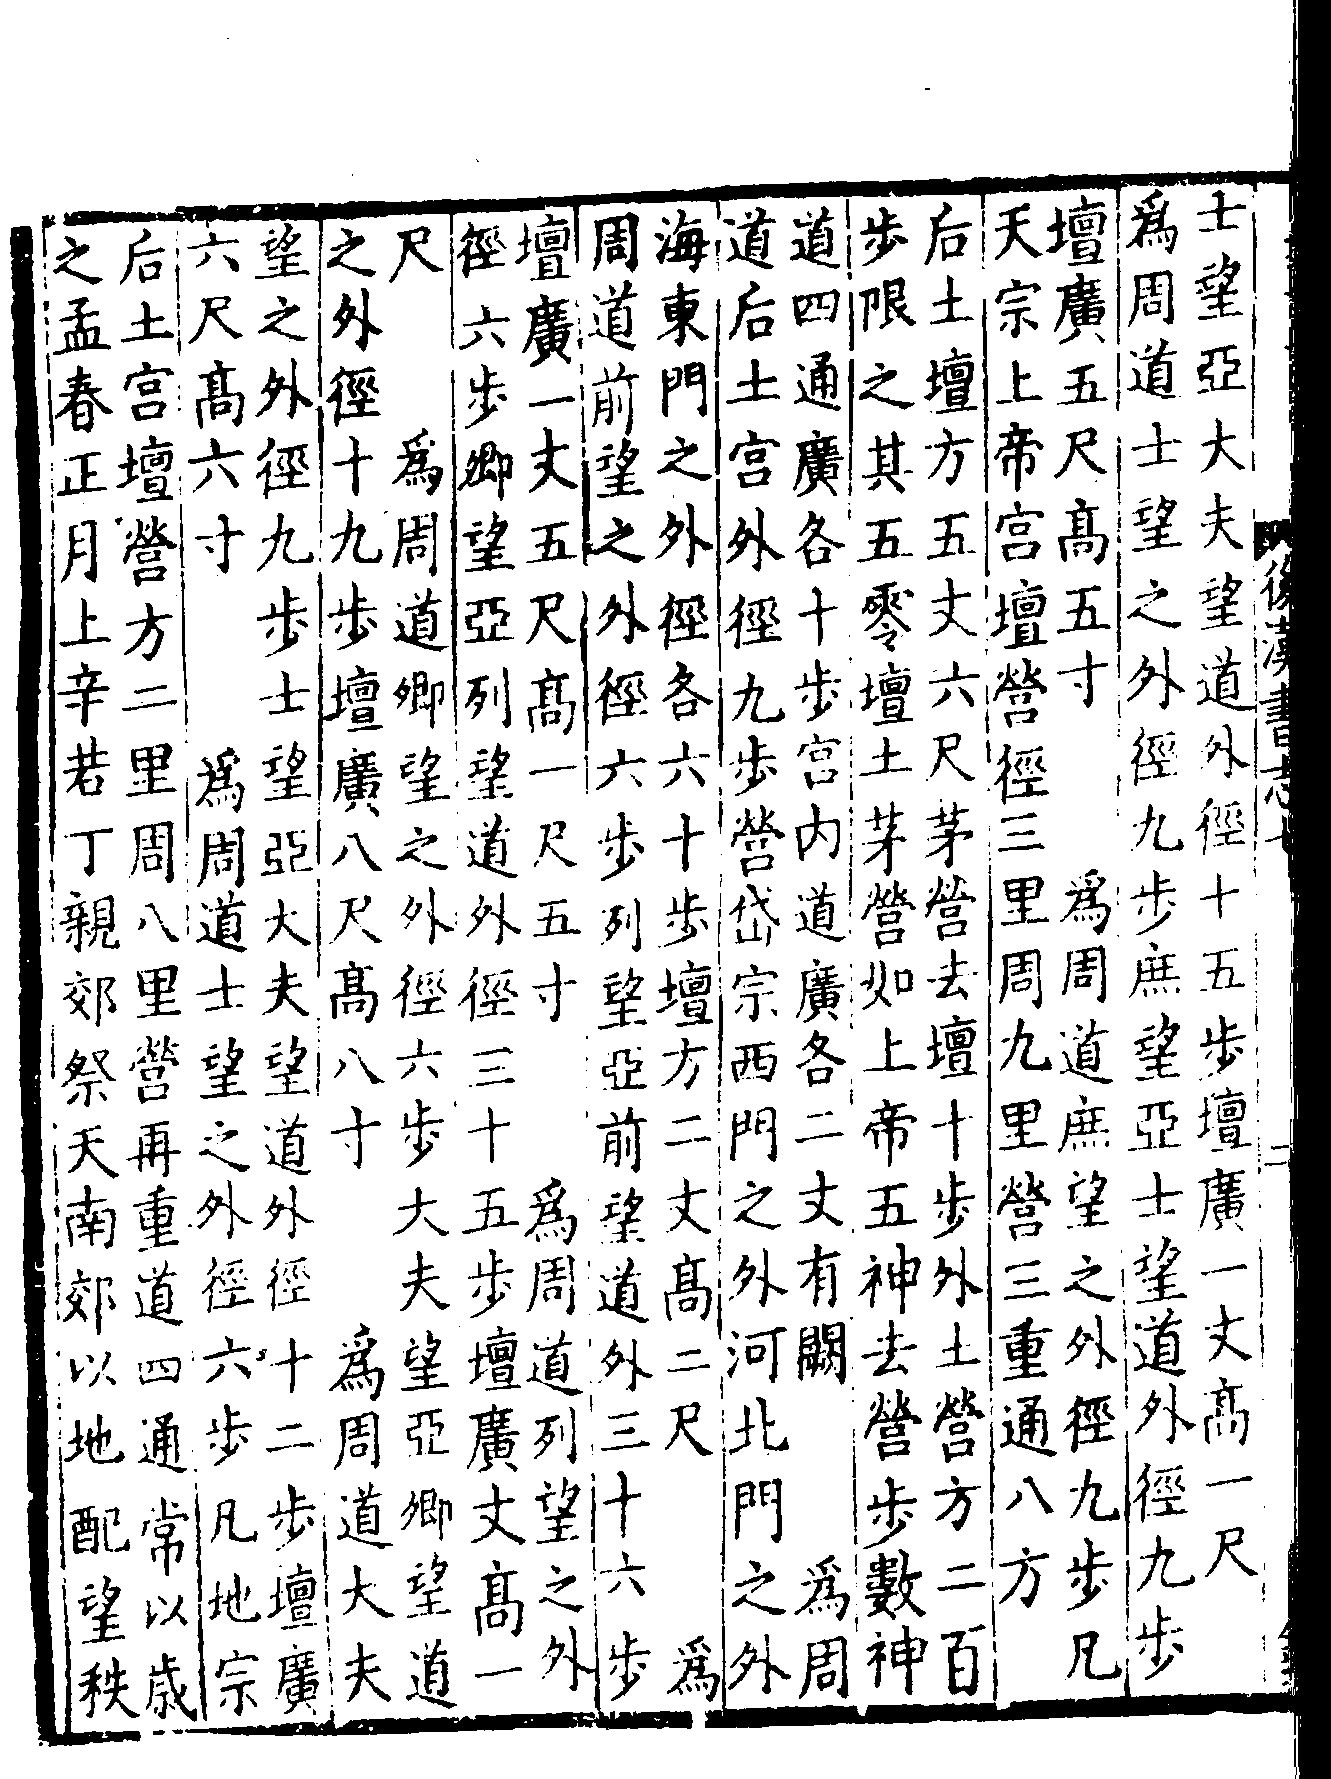 士望亞大夫望道外徑十五步壇廣一丈高一尺
爲周道士望之外徑九步庶望亞士望道外徑九步
壇廣五尺高五寸　爲周道庶望之外徑九步凡
天宗上帝宮壇營徑三里周九里營三重通八方
后土壇方五丈六尺茅營去壇十步外土營方二百
步限之其五零壇土茅營如上帝五神去營步數神
道四通廣各十步宮内道廣各二丈有闕　爲周
道后土宮外徑九步營岱宗西門之外河北門之外
海東門之外徑各六十步壇方二丈高二尺　爲
周道前望之外徑六步列望亞前望道外三十六步
壇廣一丈五尺高一尺五寸　爲周道列望之外
徑六步卿望亞列望道外徑三十五步壇廣丈高一
尺　爲周道卿望之外徑六步大夫望亞卿望道
之外徑十九步壇廣八尺高八寸　爲周道大夫
望之外徑九步士望亞大夫望道外徑十二步壇廣
六尺高六寸　爲周道士望之外徑六步凡地宗
后土宮壇營方二里周八里營再重道四通常以歲
之孟春正月上辛若丁親郊祭天南郊以地配望秩
後漢書志七
二